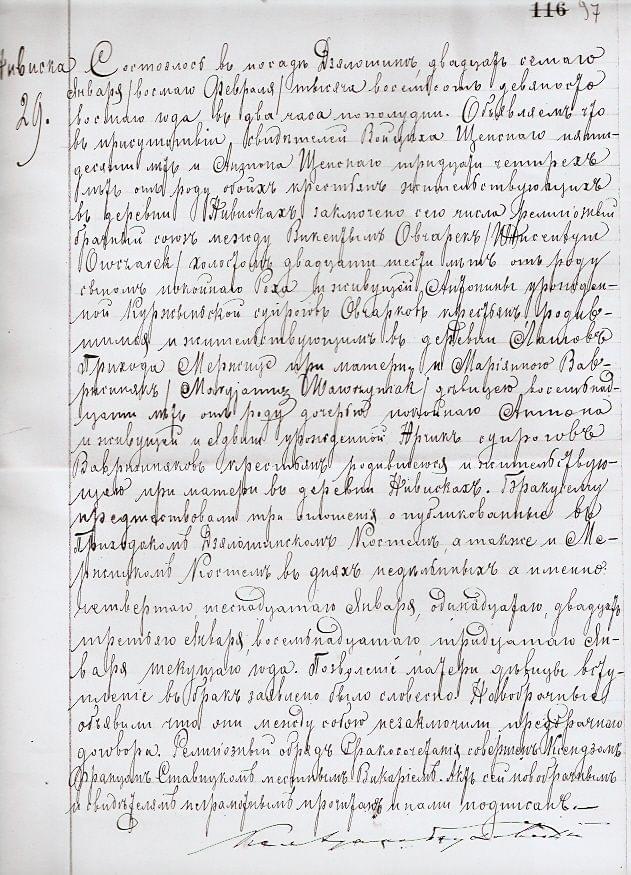 116 97
Нивиска
29.
Состоялось въ посадѣ Дзялошинѣ, двадцать седьмаго
Января /восмаго Февраля/ тысяча восемьсотъ девяносто
восмаго года въ два часа пополудни. Объявляемъ что
въ присутствіи свидѣтелей Войцѣха Щенснаго пяти-
десяти лѣтъ и Антона Щенснаго тридцати четырехъ
лѣтъ отъ роду обоихъ крестьянъ жительствующихъ
въ деревни Нивискахъ заключено сего числа религіозный
брачный союзъ между Викентымъ Овчарекъ / Wincentym
Owczarek / холостымъ двадцати шести лѣтъ отъ роду
сыномъ покойнаго Роха и живущей Антонины урожден-
ной супруговъ Овчарковъ крестьянъ родив-
шимся и жительствующимъ въ деревни
Прихода Мержице при матери, и Маріянною Вав-
ржинякъ / Maryanną Wawrzyniak / дѣвицею восемьнад-
цати лѣтъ отъ роду дочерью покойнаго Антона
и живущей Ядвиги урожденной супруговъ
Вавржиняковъ крестьянъ родившеюся и жительствую-
щею при матери въ деревни Нивискахъ. Браку сему
предшествовали три оглашенія опубликованные въ
Приходскомъ Дзялошинскомъ Костелѣ, а также и Ме-
ржицкомъ Костелѣ въ дняхъ недѣльныхъ а именно:
четвертаго, шестнадцатаго Января, одинадцатаго, двадцать
третьяго Января, восемьнадцатаго, тридцатаго Ян-
варя текущаго года. Позволеніе матери дѣвицы всту-
пленіе въ бракъ заявлено было словесно. Новобрачные
объявили что они между собою незаключили предбрачнаго
договора. Религіозный обрядъ бракосочетанія совершенъ Ксендзомъ
Францом Ставицкомъ мѣстнымъ Викаріемъ. Актъ сей новобрачнымъ
и свидѣтелямъ неграмотнымъ прочитанъ и нами подписанъ.—